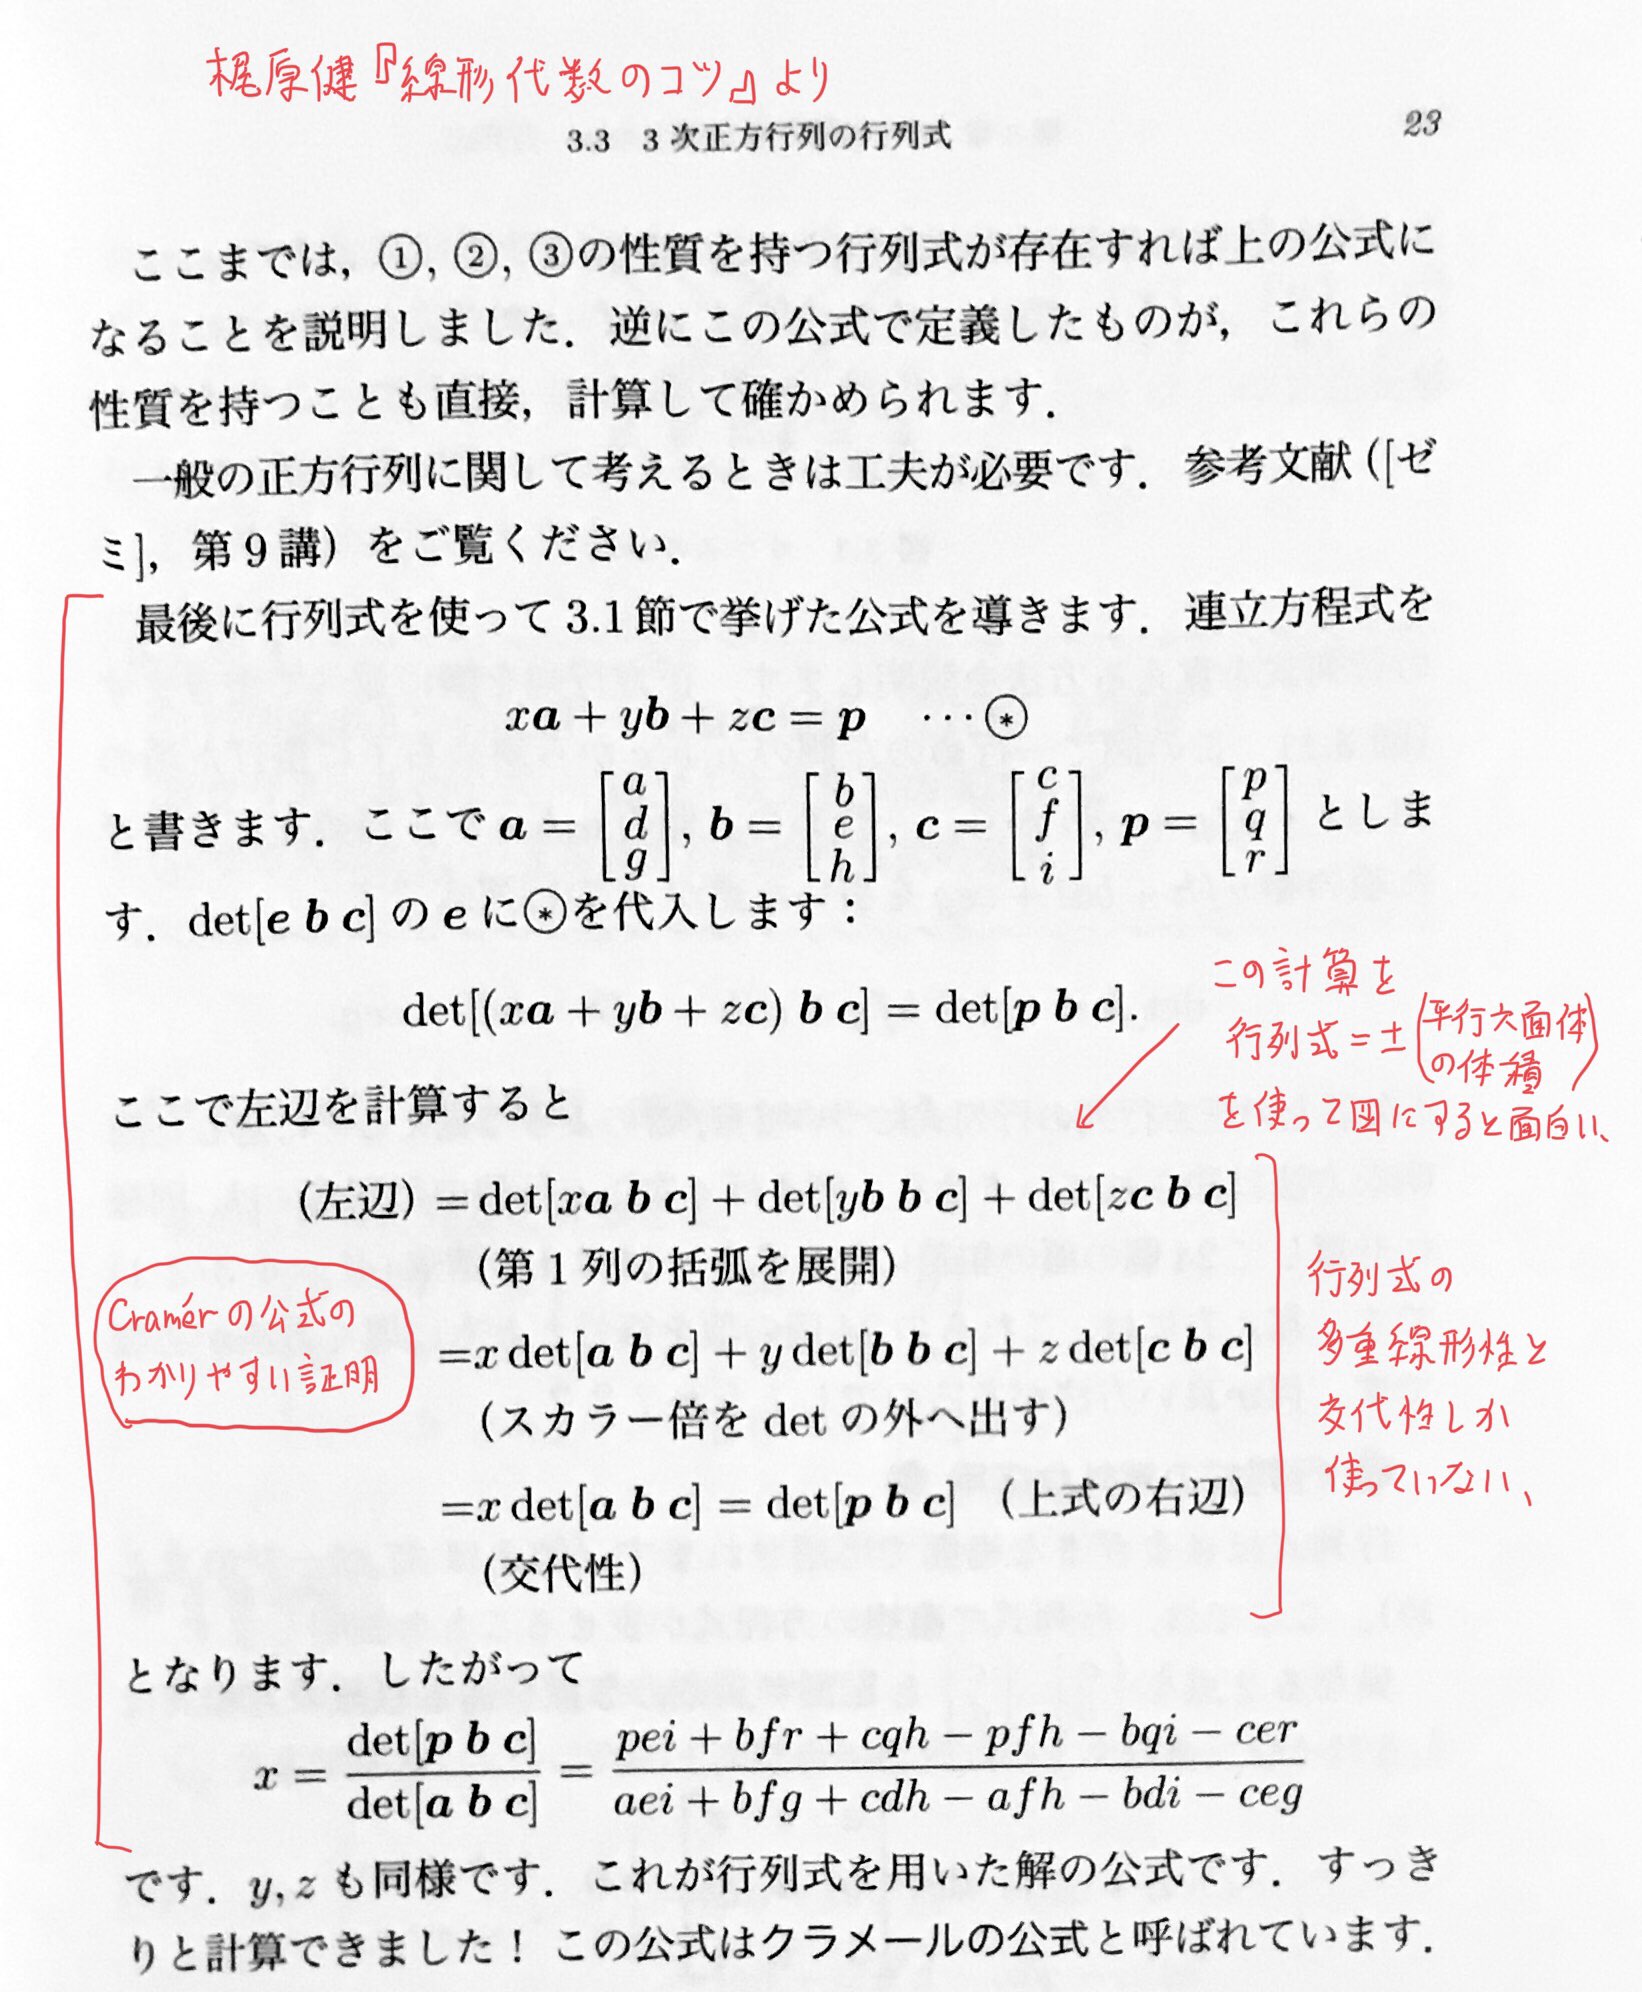 梶原健『線形代数のコツ』より
3.3 3次正方行列の行列式 23
ここまでは，①，②，③の性質を持つ行列式が存在すれば上の公式に
なることを説明しました．逆にこの公式で定義したものが，これらの
性質を持つことも直接，計算して確かめられます．
一般の正方行列に関して考えるときは工夫が必要です．参考文献（[ゼ
ミ]，第9講）をご覧ください．
最後に行列式を使って3.1節で挙げた公式を導きます．連立方程式を
xa + yb + zc = p ⋯⊛
と書きます．ここで a = [a d g], b = [b e h], c = [c f i], p = [p q r] としま
す．det[e b c] の e に⊛を代入します：
det[(xa + yb + zc) b c] = det[p b c].
この計算を
行列式＝±(平行六面体の体積)
を使って図にすると面白い、
ここで左辺を計算すると
（左辺）= det[xa b c] + det[yb b c] + det[zc b c]
（第1列の括弧を展開）
=x det[a b c] + y det[b b c] + z det[c b c]
（スカラー倍を det の外へ出す）
=x det[a b c] = det[p b c] （上式の右辺）
（交代性）
Cramérの公式の
わかりやすい証明
行列式の
多重線形性と
交代性しか
使っていない、
となります．したがって
x = det[p b c] / det[a b c] = (pei + bfr + cqh − pfh − bqi − cer) / (aei + bfg + cdh − afh − bdi − ceg)
です．y, z も同様です．これが行列式を用いた解の公式です．すっき
りと計算できました！ この公式はクラメールの公式と呼ばれています．